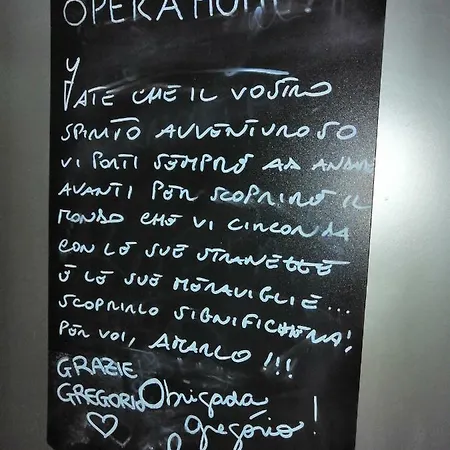 FATE CHE IL VOSTRO
SPIRITO AVVENTUROSO
VI PORTI SEMPRE AD ANDAR
AVANTI PER SCOPRIRE IL
MONDO CHE VI CIRCONDA
CON LE SUE STRANEZZE
E LE SUE MERAVIGLIE...
SCOPRIRLO SIGNIFICHERA!
PER VOI, AMARLO !!!
GRAZIE
GREGORIO
Obrigada
Gregório!